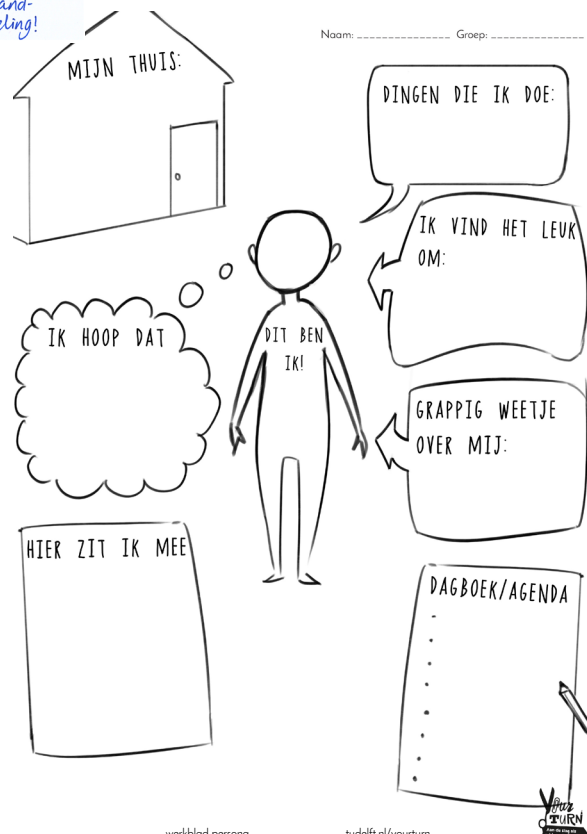 and-
eling!
Naam: _______________ Groep: _______________
MIJN THUIS:
DINGEN DIE IK DOE:
IK VIND HET LEUK
OM:
IK HOOP DAT
DIT BEN
IK!
GRAPPIG WEETJE
OVER MIJ:
HIER ZIT IK MEE
DAGBOEK/AGENDA
Your
TURN
werkblad persona
tudelft.nl/yourturn